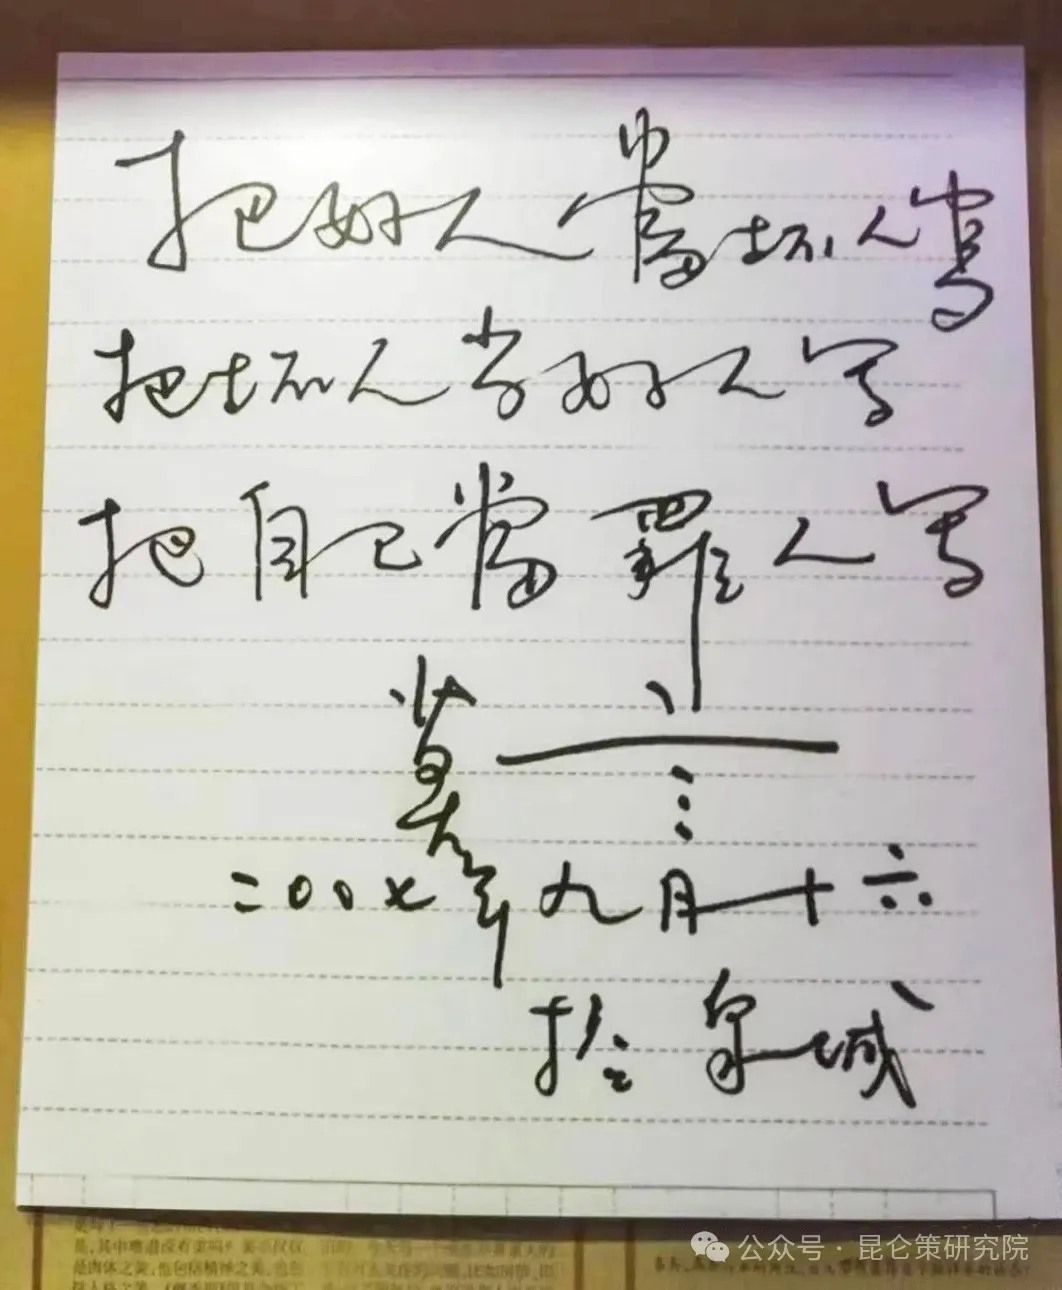 把好人當坏人写
把坏人当好人写
把自己當罪人写
莫言
二〇〇七年九月十六
於泉城
公众号·昆仑策研究院